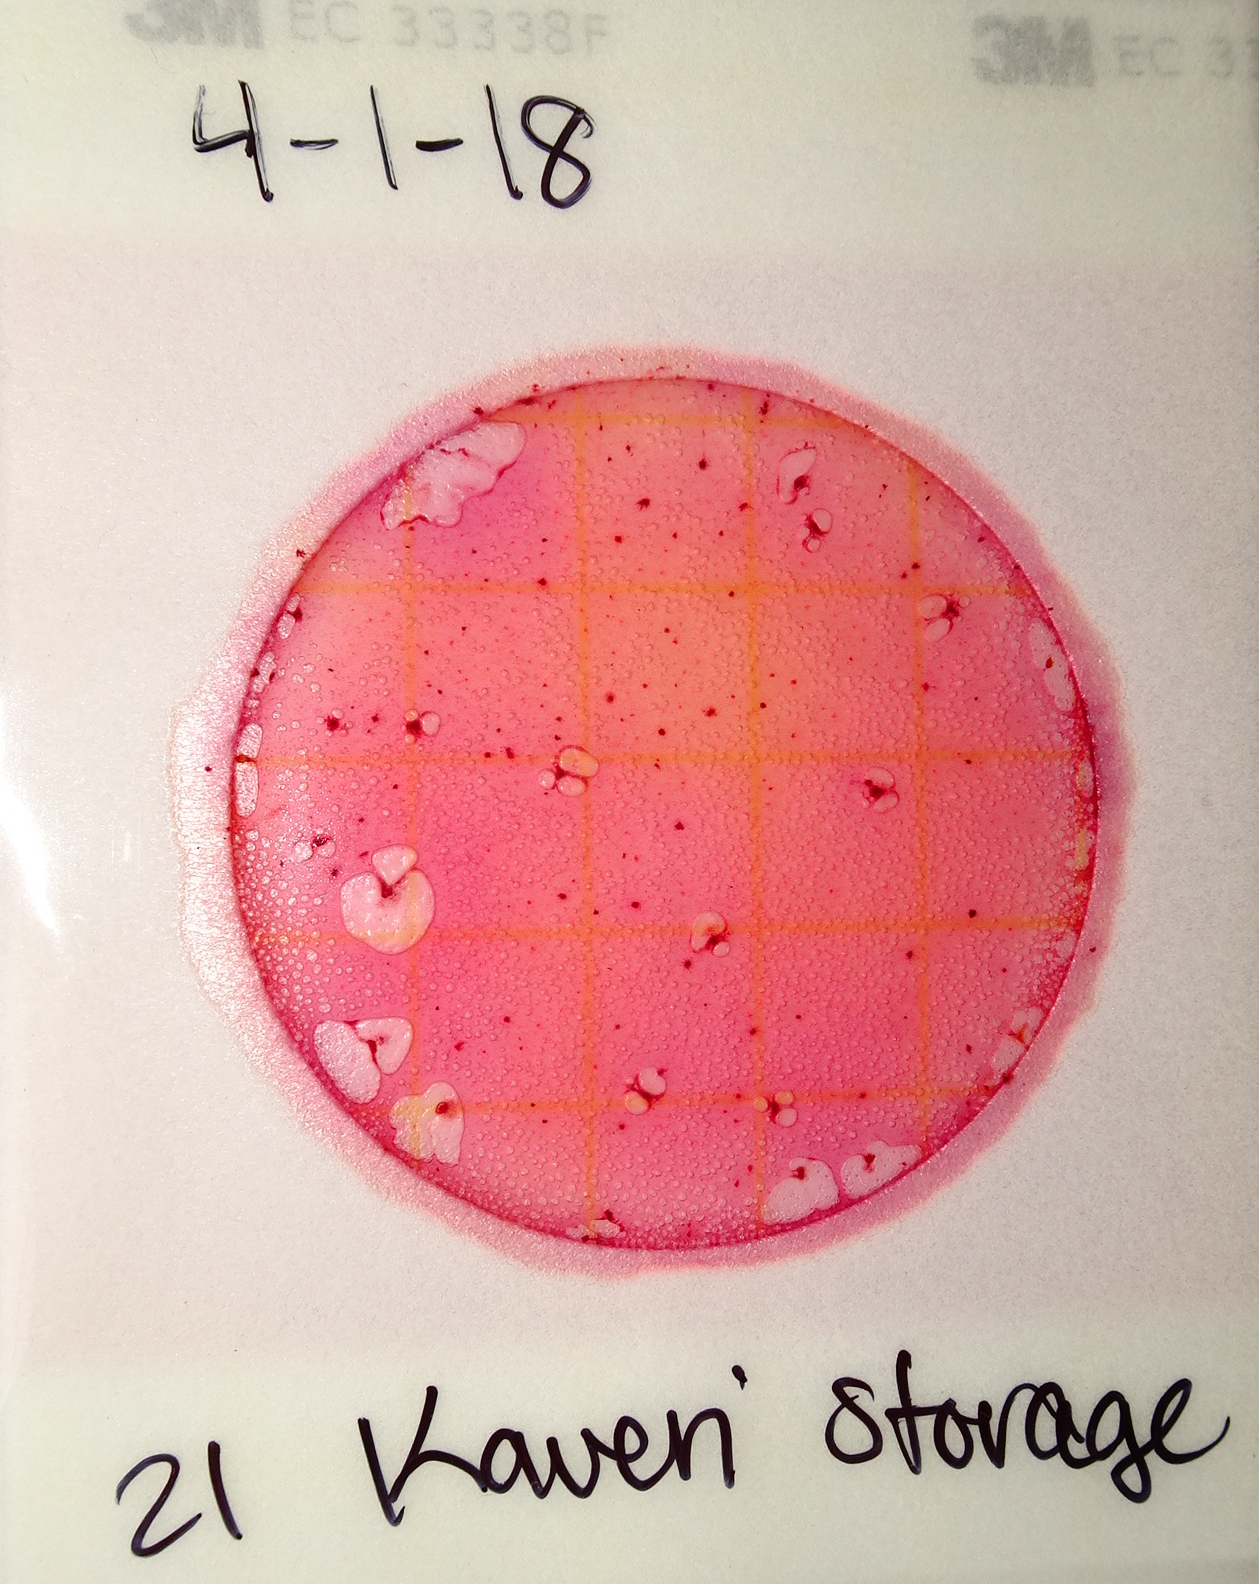 3M EC 33338F 3M EC 3
4-1-18
21 Kaveri storage